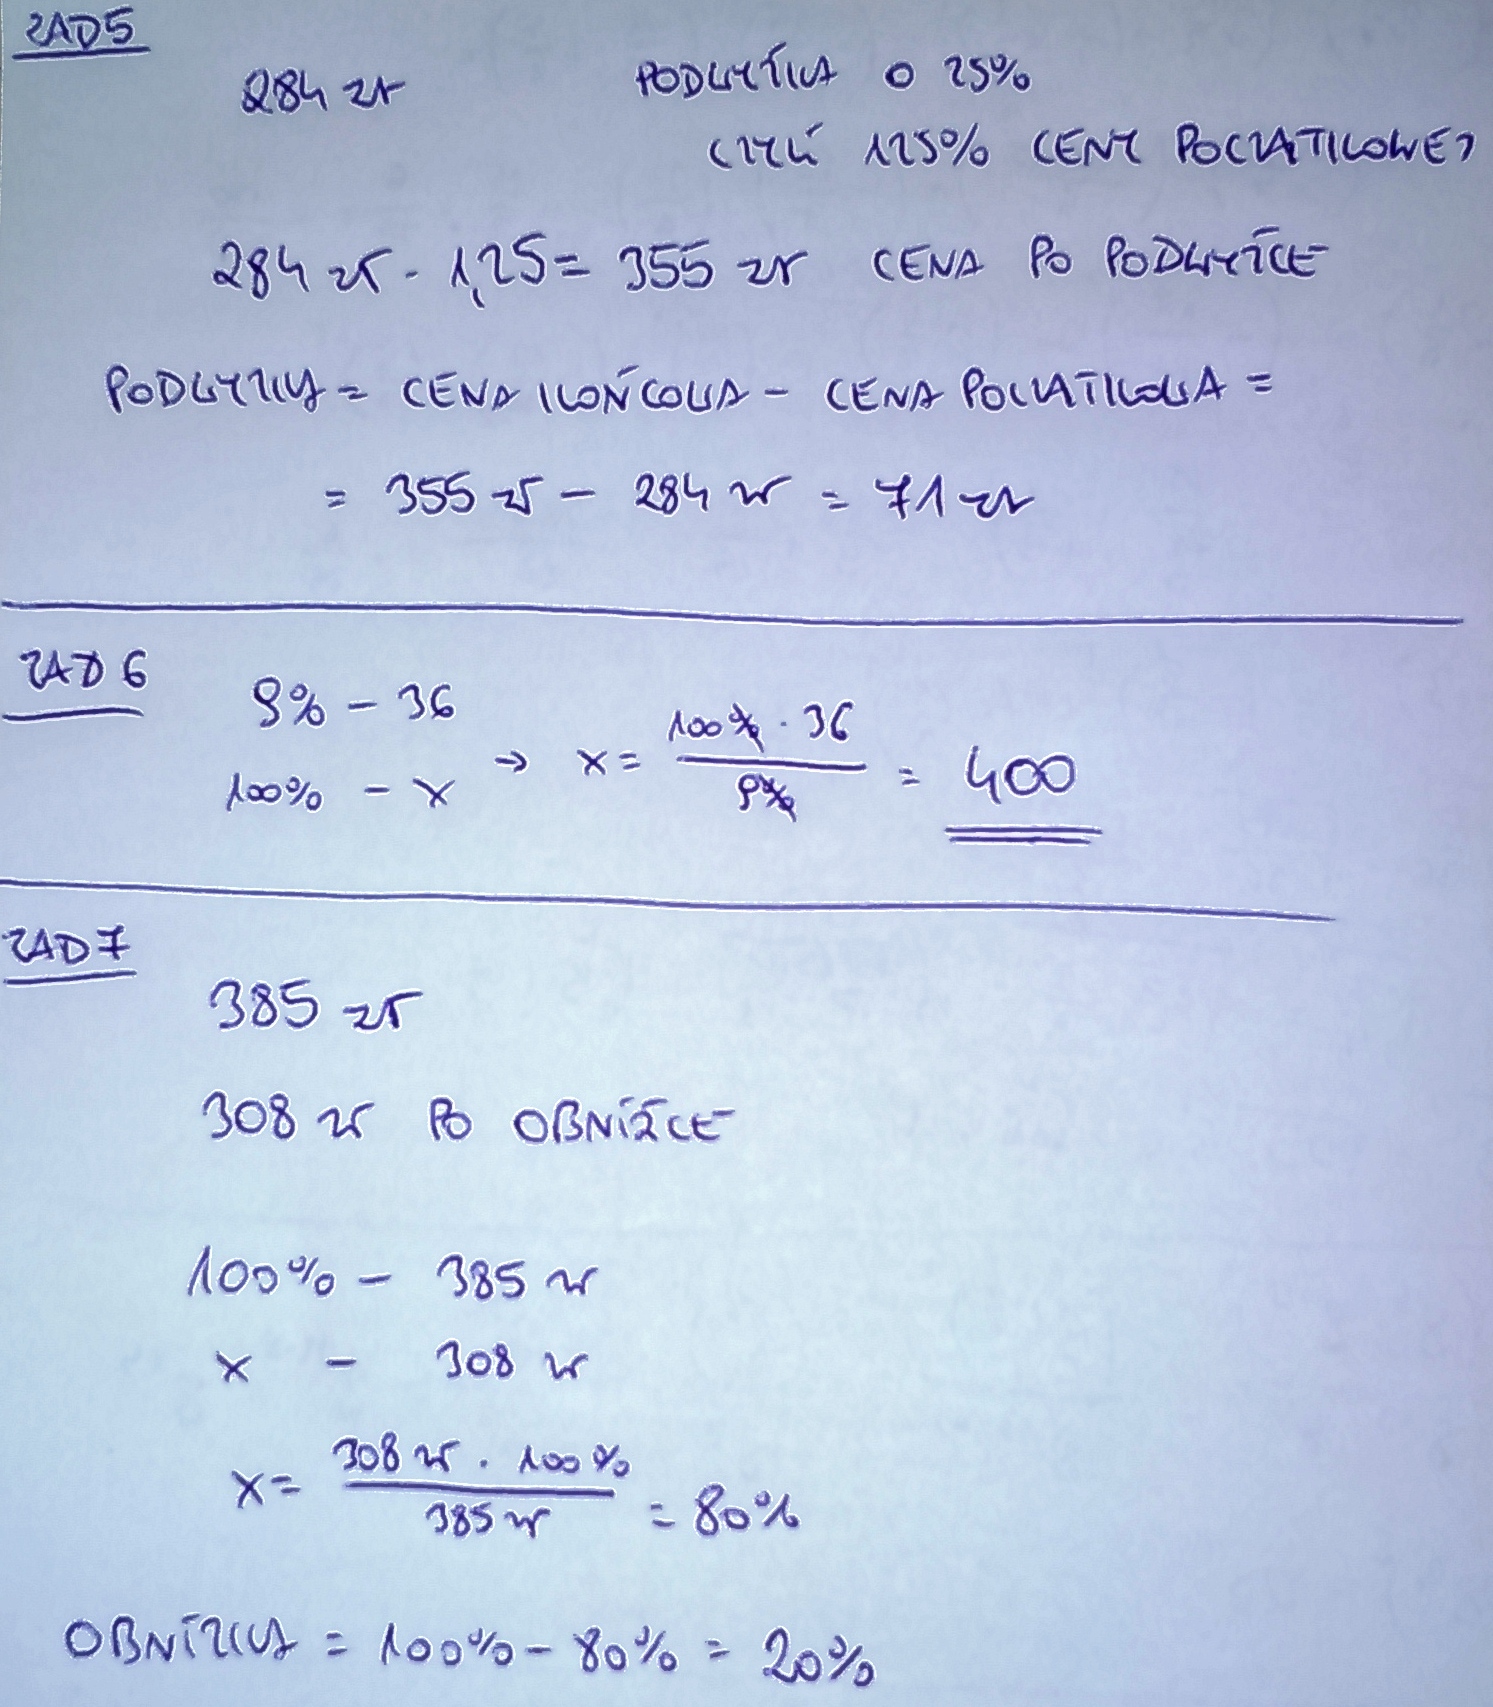 ZAD5
284 zł PODWYŻKA O 25%
CZYLI 125% CENY POCZĄTKOWEJ
284 zł · 1,25 = 355 zł CENA PO PODWYŻCE
PODWYŻKA = CENA KOŃCOWA - CENA POCZĄTKOWA =
= 355 zł - 284 zł = 71 zł
ZAD 6
9% - 36
100% - x → x = 100% · 36 / 9% = 400
ZAD 7
385 zł
308 zł PO OBNIŻCE
100% - 385 zł
x - 308 zł
x = 308 zł · 100% / 385 zł = 80%
OBNIŻKA = 100% - 80% = 20%